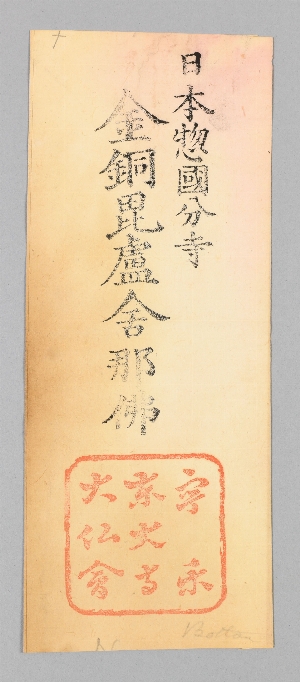 日本惣國分寺
金銅毘盧舍那佛
寧樂
東大寺
大仏會